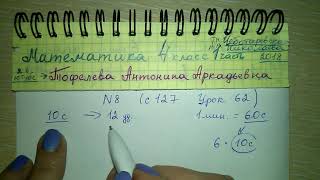 Математика 4 класс 1 часть 2018
Тофелева Антонина Аркадьевна
N8 (с 127 Урок 62)
10с → 12 уд. 1 мин. = 60с
6 · 10с